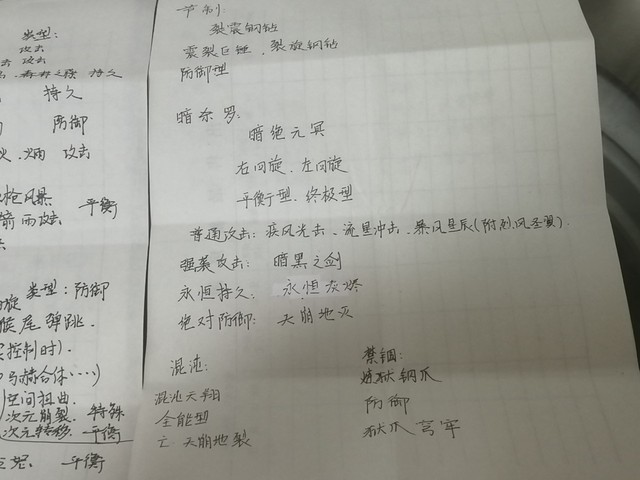 类型：
攻击
击 攻击
持久
持久
防御
火．炳 攻击
枪风暴
平衡
箭雨攻击．
类型：防御
旋
猴尾弹跳．
控制时）．
马赫合体……）
空间扭曲．
次元崩裂．特殊
次元转移．平衡
怒． 平衡
节制：
裂震钢钻
震裂巨锤．裂旋钢钻
防御型
暗尔罗：
暗绝元冥
右回旋．左回旋
平衡型．终极型
普通攻击：疾风光击．流星冲击．暴风星辰（附：烈风圣翼）．
强袭攻击：暗黑之剑
永恒持久：永恒灰烬
绝对防御：天崩地灭
混沌：
混沌天翔
全能型
亡 天崩地裂
禁锢：
炼狱钢爪
防御
狱爪穹牢